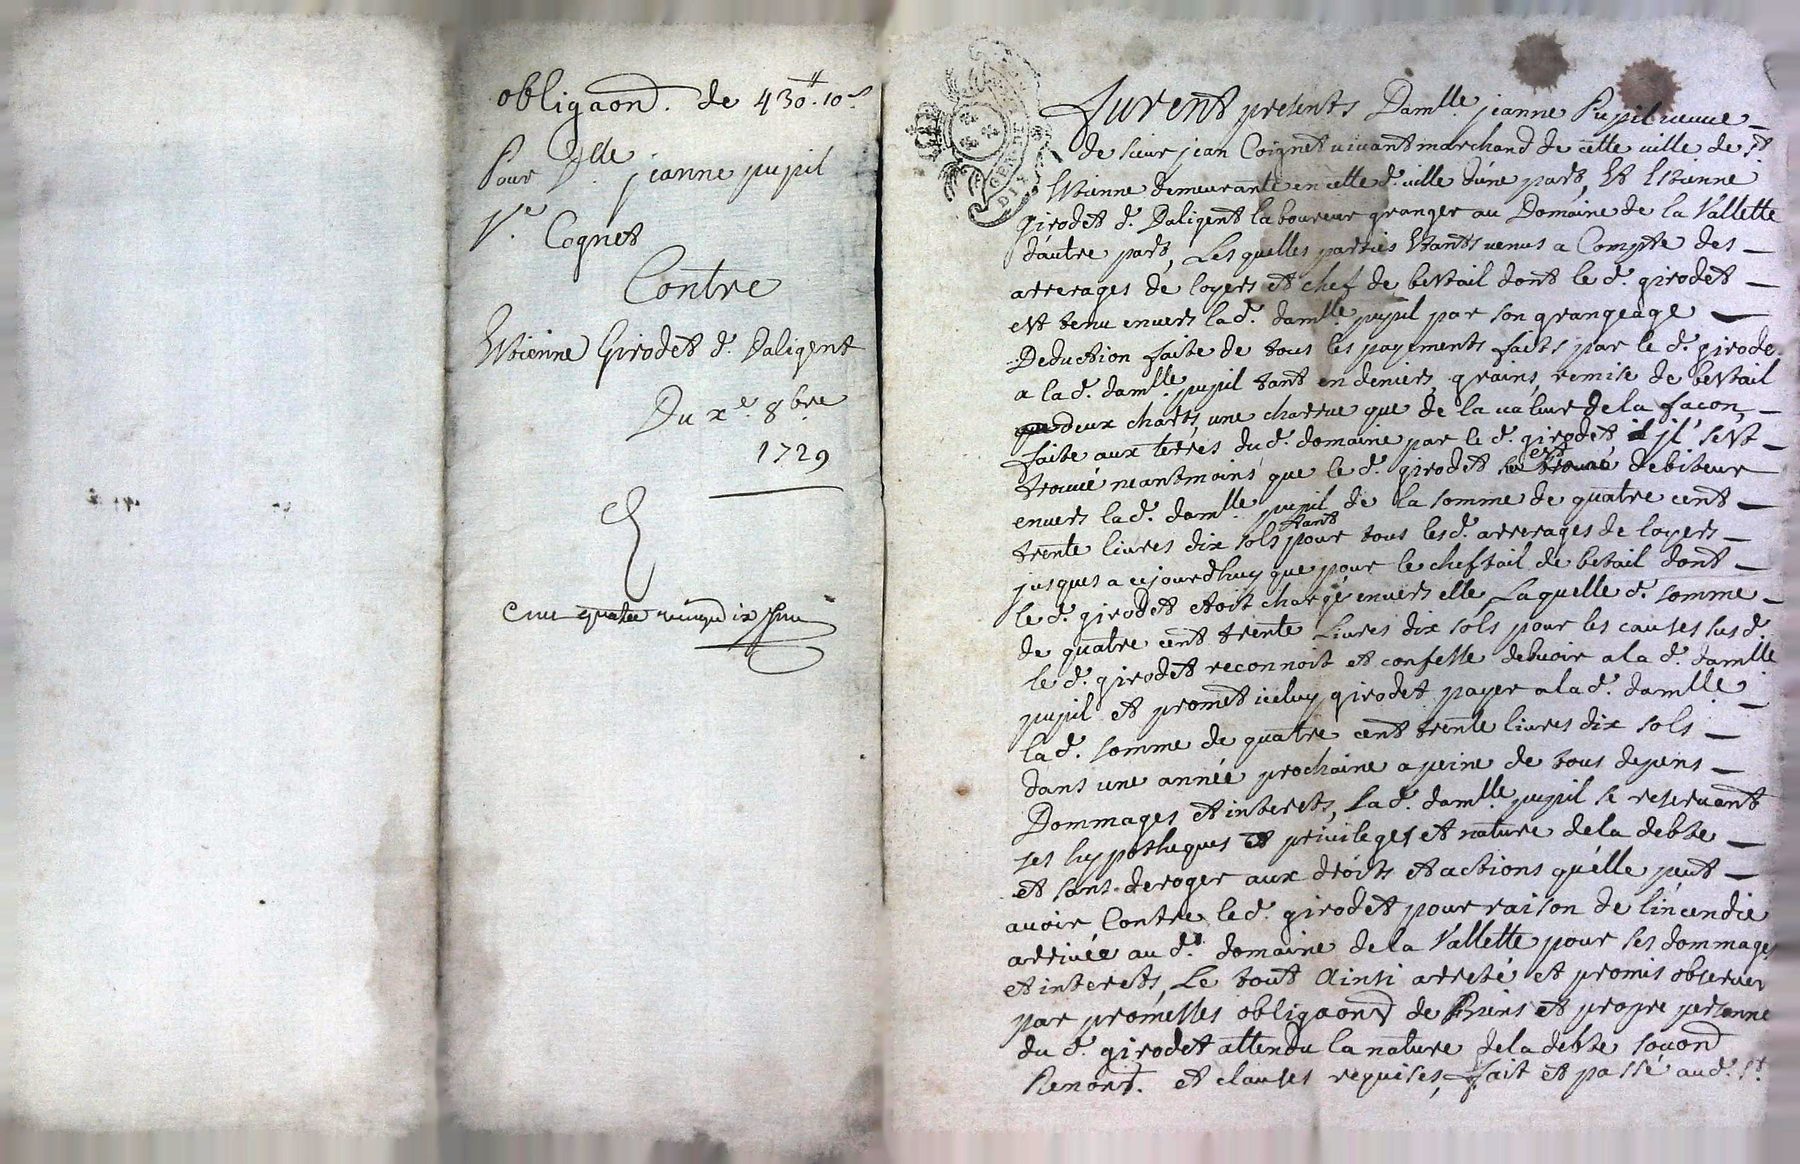 obligaon. de 430ᵗᵗ. 10ˢ
Pour Dlle. jeanne pupil
Vᵉ. Cognet
Contre
Estienne Girodet d. Daligent
Du xᵉ. 8bre
1729
GEN. DE
DIX
Furent presents Damlle. jeanne Pupil veuve
de sieur jean Coignet vivant marchand de cette ville de St
Estienne demeurante en cette d. ville d'une part, Et Estienne
girodet d. Daligent laboureur granger au Domaine de la Vallette
d'autre part, Lesquelles parties Etants venus a Compte des
arrerages de loyers et chef de bestail dont le d. girodet
est tenu envers la d. damlle. pupil par son grangeage
Deduction faite de tous les payements faits par le d. girodet
a la d. damlle. pupil tant en deniers, grains, remise de bestail
deux charts, une charrue que de la valeur de la facon
faite aux terres du d. domaine par le d. girodet jl sest
trouvé neantmoins que le d. girodet est debiteur
envers la d. damlle. pupil de la somme de quatre cent
trente livres dix sols tant pour tous les d. arrerages de loyers
jusques a cejourdhuy que pour le cheftail de betail dont
le d. girodet etoit chargé envers elle, Laquelle d. somme
de quatre cent trente Livres dix sols pour les causes susd.
le d. girodet reconnoit et confesse debvoir a la d. damlle
pupil et promet iceluy girodet payer a la d. damlle
la d. somme de quatre cent trente livres dix sols
dans une année prochaine a peine de tous depens
Dommages et interets, la d. damlle. pupil se reservant
ses hypotheques et privileges et nature de la debte
et sans deroger aux droits et actions qu'elle peut
avoir Contre le d. girodet pour raison de l'incendie
arrivée au d. domaine de la Vallette pour ses dommages
et interets, Le tout Ainsi arreté et promis observer
par promesses obligaon de Biens et propre personne
du d. girodet attendu la nature de la debte
Renont. et clauses requises, fait et passé aud. St.